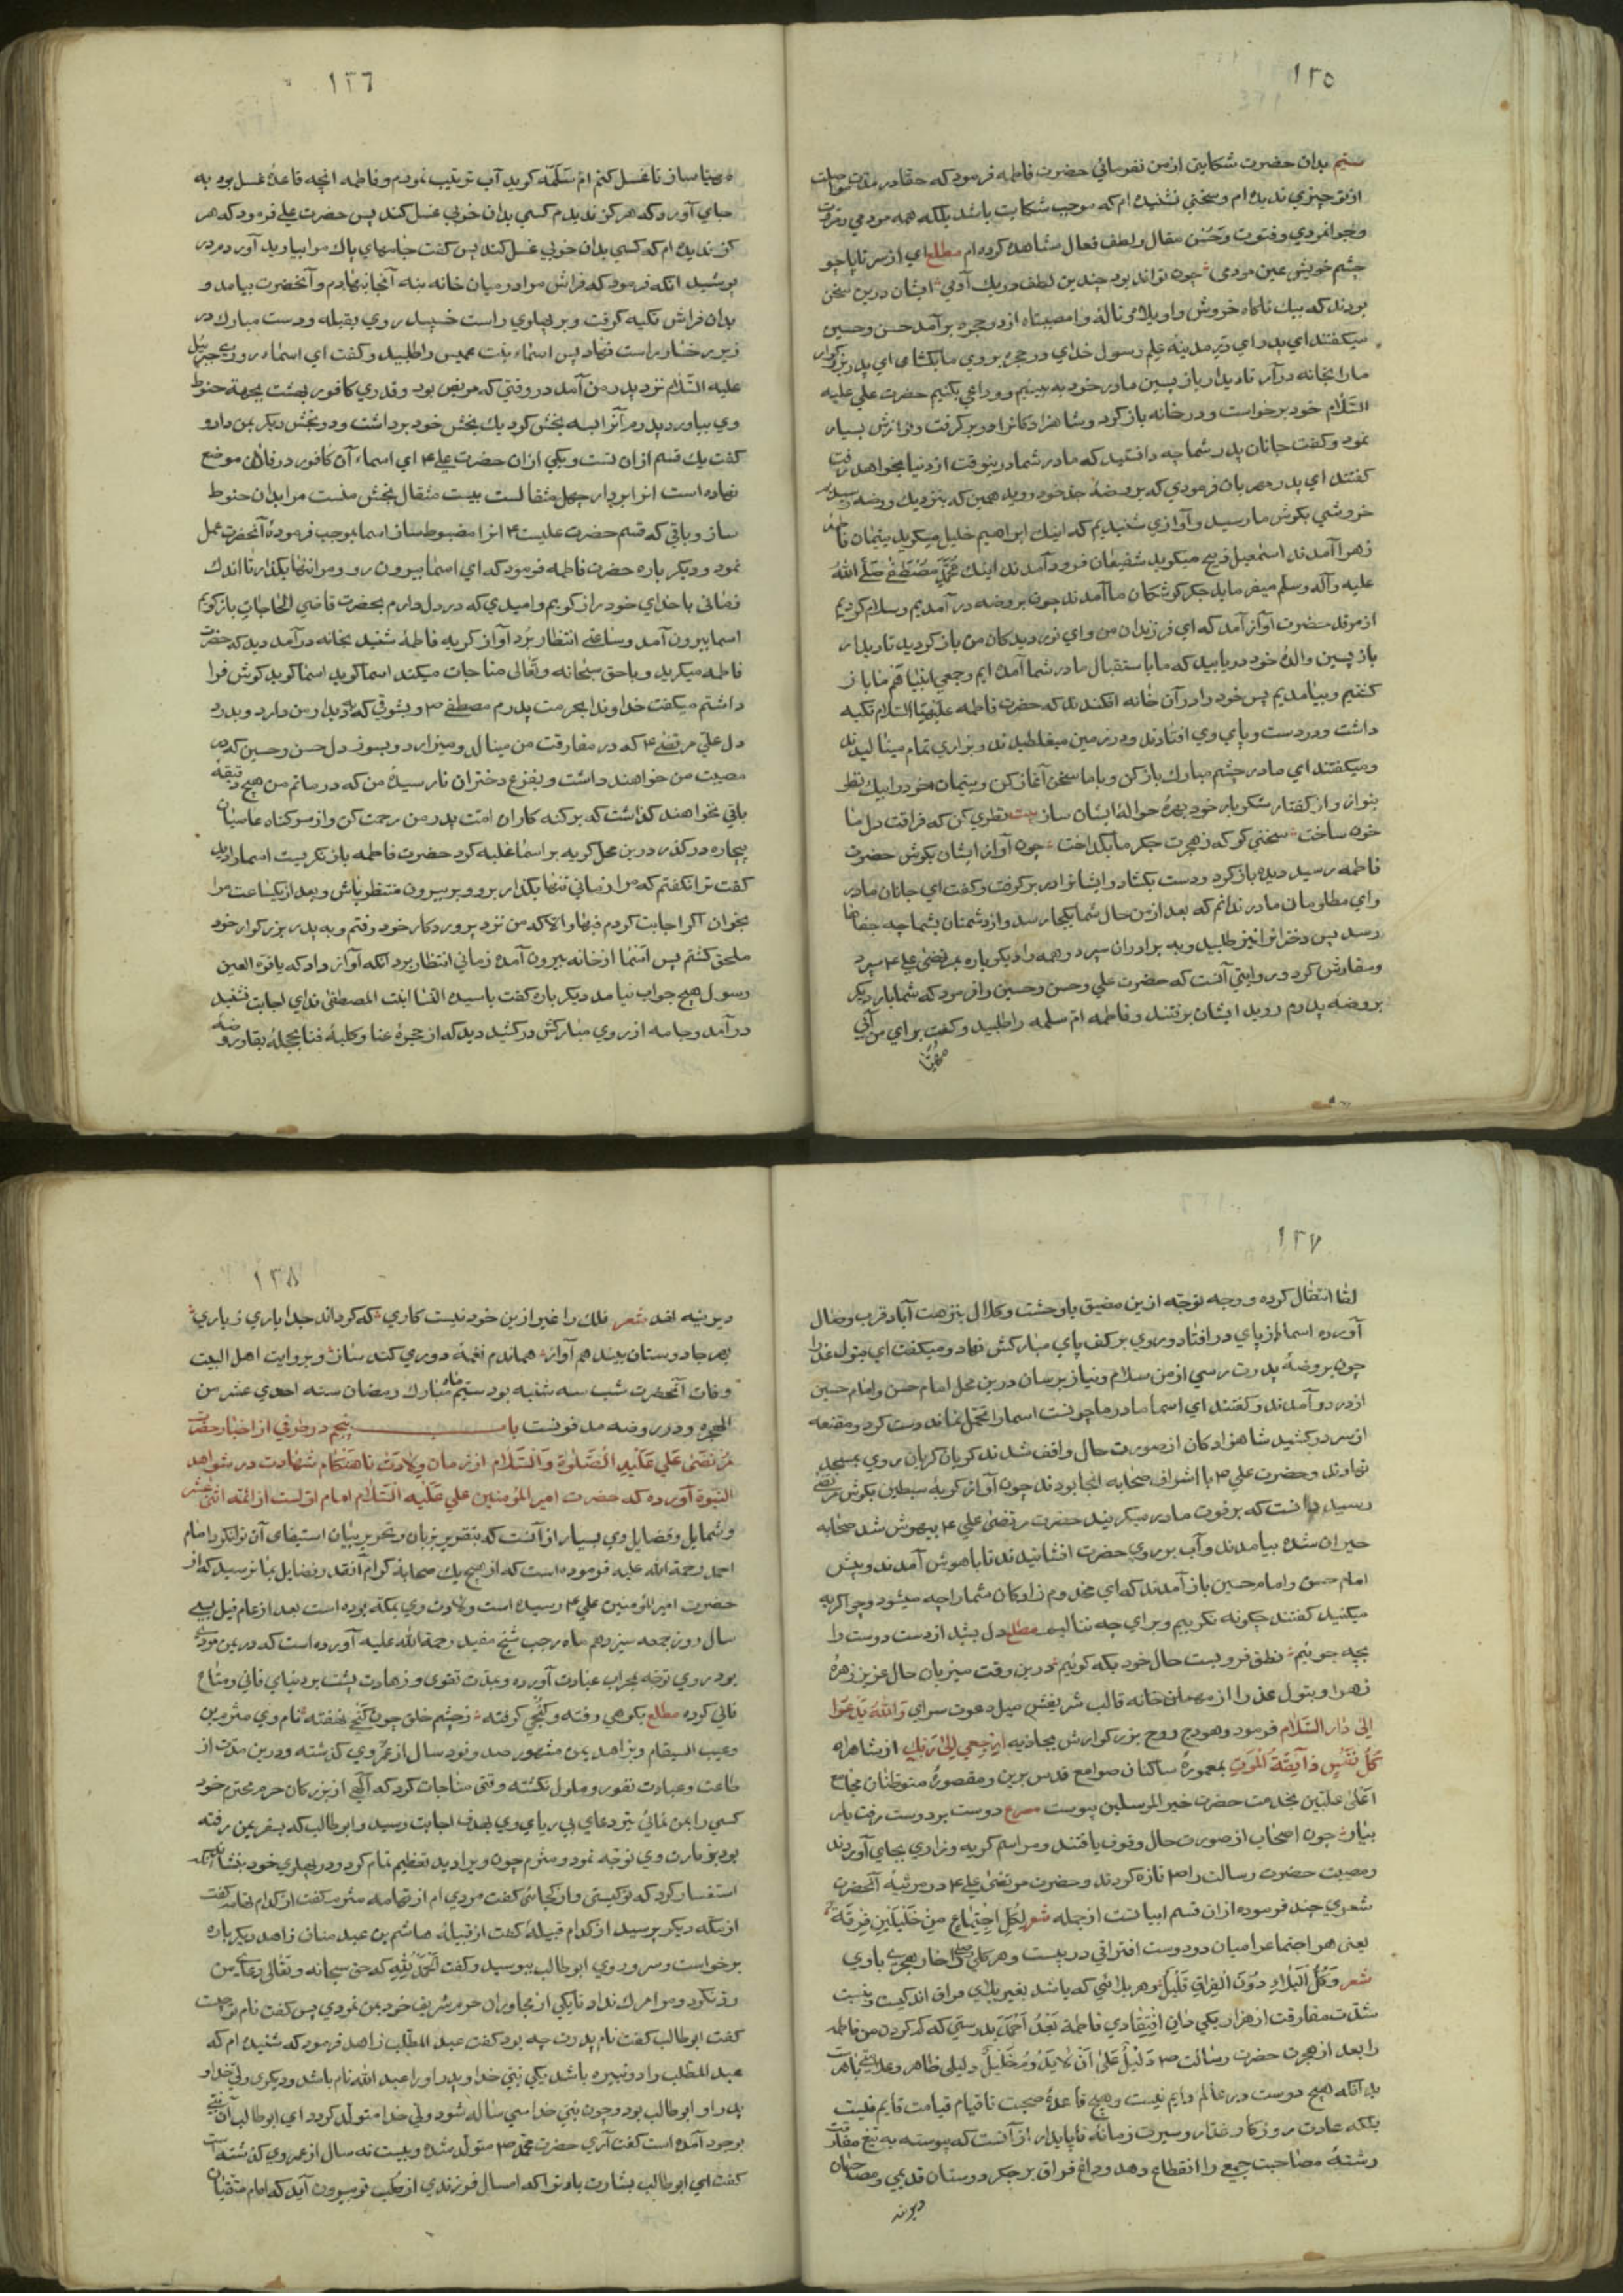 ١٣٥
ستیم بدان حضرت شکایتی از من نفرمائی حضرت فاطمه فرمود که حقا در مدت مواصلت
از تو چیزی ندیده ام و سخنی نشنیده ام که موجب شکایت باشد بلکه همه مردمی و مروت
و جوانمردی و فتوت و حسن مقال و لطف فعال مشاهده کرده ام مطلع ای ز سر تا پا چو
چشم خویش عین مردمی چون تواند بود چندین لطف در یک آدمی ایشان درین سخن
بودند که بیک ناکاه خروش واویلاه و ناله وامصیبتاه از در حجره بر آمد حسن و حسین
میکفتند ای پدر و ای در مدینه علم رسول خدای در حجره بر روی ما بکشای ای پدر بزرکوار
ما را بخانه در آر تا دیدار بازپسین مادر خود به بینیم و وداعی بکنیم حضرت علی علیه
السلام خود برخواست و در خانه باز کرد و شاهزادکانرا در بر کرفت و نوازش بسیار
نمود و کفت جانان پدر شما چه دانستید که مادر شما درینوقت از دنیا بخواهد رفت
کفتند ای پدر مهربان فرمودی که بروضه جد خود روید همین که بنزدیک روضه رسیدیم
خروشی بکوش ما رسید و آوازی شنیدیم که اینک ابراهیم خلیل میکوید یتیمان فاطمه
زهرا آمدند اسمعیل ذبیح میکوید شفیعان فرود آمدند اینک محمد مصطفی صلی الله
علیه و آله و سلم میفرماید جکر کوشکان ما آمدند چون بروضه در آمدیم و سلام کردیم
از مرقد حضرت آواز آمد که ای فرزندان من و ای نور دیدکان من باز کردید تا دیدار
باز پسین والده خود دریابید که ما باستقبال مادر شما آمده ایم و جمعی انبیا قم ما باز
کشتیم و بیامدیم پس خود را در آن خانه افکندند که حضرت فاطمه علیها السلام تکیه
داشت و در دست و پای وی افتادند و در زمین میغلطیدند و بزاری تمام مینالیدند
و میکفتند ای مادر چشم مبارک باز کن و با ما سخن آغاز کن و یتیمان خود را بیک نظر
بنواز و از کفتار شکربار خود بهره حواله ایشان ساز بیت نظری کن که فراقت دل ما
خون ساخت سخنی کو که ز هجرت جکر ما بکداخت چون آواز ایشان بکوش حضرت
فاطمه رسید دیده باز کرد و دست بکشاد و ایشانرا در بر کرفت و کفت ای جانان مادر
و ای مظلومان مادر ندانم که بعد از من حال شما بکجا رسد و از دشمنان بشما چه جفاها
رسد پس دخترانرا نیز طلبید و به برادران سپرد و همه را دیکر باره بمرتضی علی ۴ سپرد
و سفارش کرد و روایتی آنست که حضرت علی و حسن و حسین را فرمود که شما بار دیکر
بروضه پدرم روید ایشان برفتند و فاطمه ام سلمه را طلبید و کفت برای من آبی
مهیا
١٣٦
مهیا ساز تا غسل کنم ام سلمه کوید آب ترتیب نمودم و فاطمه انچه قاعده غسل بود به
جای آورد که هرکز ندیدم کسی بدان خوبی غسل کند پس حضرت علی فرمود که هر
کز ندیده ام که کسی بدان خوبی غسل کند پس کفت جامهای پاک مرا بیاورید آوردم در
پوشید انکه فرمود که فراش مرا در میان خانه بنه آنجا بنهادم و آنحضرت بیامد و
بدان فراش تکیه کرفت و بر پهلوی راست خسپید روی بقبله و دست مبارک در
زیر رخسار راست نهاد پس اسماء بنت عمیس را طلبید و کفت ای اسماء روزی جبرئیل
علیه السلام نزد پدر من آمد در وقتی که مریض بود و قدری کافور بهشت بجهة حنوط
وی بیاورد پدرم آنرا بسه بخش کرد یک بخش خود برداشت و دو بخش دیکر بمن داد و
کفت یک قسم ازان تست و یکی ازان حضرت علی ۴ ای اسماء آن کافور در فلان موضع
نهاده است انرا بردار چهل مثقالست بیست مثقال بخش منست مرا بدان حنوط
ساز و باقی که قسم حضرت علیست ۴ انرا مضبوط ساز اسما بموجب فرموده آنحضرت عمل
نمود و دیکر باره حضرت فاطمه فرمود که ای اسما بیرون رو و مرا تنها بکذار تا اندک
زمانی با خدای خود راز کویم و امیدی که در دل دارم بحضرت قاضی الحاجات باز کویم
اسما بیرون آمد و ساعتی انتظار برد آواز کریه فاطمه شنید بخانه در آمد دید که حضرت
فاطمه میکرید و با حق سبحانه و تعالی مناجات میکند اسما کوید اسما کوید کوش فرا
داشتم میکفت خداوندا بحرمت پدرم مصطفی ص و بشوقی که بدیدار من دارد و بدرد
دل علی مرتضی ۴ که در مفارقت من مینالد و میزارد و بسوز دل حسن و حسین که در
مصیبت من خواهند داشت و بفزع دختران نارسیده من که در ماتم من هیچ دقیقه
باقی نخواهند کذاشت که بر کنه کاران امت پدر من رحمت کن و از سر کناه عاصیان
بیچاره در کذر درین محل کریه بر اسما غلبه کرد حضرت فاطمه باز نکریست اسما را دید
کفت ترا نکفتم که مرا زمانی تنها بکذار برو و بر بیرون منتظر باش و بعد از یکساعت مرا
بخوان اکر اجابت کردم فبها و الا که من نزد پروردکار خود رفتم و به پدر بزرکوار خود
ملحق کشتم پس اسما از خانه بیرون آمده زمانی انتظار برد انکه آواز داد که یا قرة العین
رسول هیچ جواب نیامد دیکر باره کفت یا سیدة النسا ابنت المصطفی ندای اجابت نشنید
در آمد و جامه از روی مبارکش در کشید دید که از حجره عنا و کلبه فنا بحجله بقا و روضه
١٣٧
لقا انتقال کرده و وجه توجه ازین مضیق با وحشت و کلال بنزهت آباد قرب وصال
آورده اسما از پای در افتاد و روی بر کف پای مبارکش نهاد و میکفت ای بتول عذرا
چون بروضه پدرت رسی از من سلام و نیاز برسان درین محل امام حسن و امام حسین
از در در آمدند و کفتند ای اسما مادر ما چونست اسما را تحمل نماند دست کرد و مقنعه
از سر در کشید شاهزادکان از صورت حال واقف شدند کویان کریان روی بمسجد
نهادند و حضرت علی ۴ با اشراف صحابه انجا بودند چون آواز کریه سبطین بکوش مرتضی
رسید دانست که بر فوت مادر میکریند حضرت مرتضی علی ۴ بیهوش شد صحابه
حیران شده بیامدند و آب بر روی حضرت افشانیدند تا باهوش آمدند و پیش
امام حسن و امام حسین باز آمدند که ای مخدوم زادکان شما را چه میشود و چرا کریه
میکنید کفتند چکونه نکرییم و برای چه ننالیم مطلع دل بشد از دست دوست را
بچه جوئیم نطق فرو بست حال خود بکه کوئیم درین وقت میزبان حال عزیز زهره
زهرا و بتول عذرا از مهمانخانه قالب شریفش میل دعوت سرای والله یدعوا
الی دار السلام فرمود و هودج روح بزرکوارش بجاذبه ارجعی الی ربک از شاهراه
کل نفس ذائقة الموت بمعموره ساکنان صوامع قدس برین و مقصوره متوطنان مجامع
اعلی علیین بخدمت حضرت خیر المرسلین پیوست مصرع دوست بر دوست رفت یار
بیار چون اصحاب از صورت حال وقوف یافتند و مراسم کریه و زاری بجای آوردند
و مصیبت حضرت رسالت را ص تازه کردند و حضرت مرتضی علی ۴ در مرثیه آنحضرت
شعری چند فرموده ازان قسم ابیاتست از جمله شعر لکل اجتماع من خلیلین فرقة
یعنی هر اجتماع را میان دو دوست افتراقی در پیست و هر کلی را خار هجری باوی
شعر و کل البلاء دون الفراق قلیل و هر بلائی که باشد بغیر بلای فراق اندکیست و نسبت
شدت مفارقت از هزار یکی وان افتقادی فاطمة بعد احمد بدرستی که کم کردن من فاطمه
را بعد از هجرت حضرت رسالت ص دلیل علی ان لا یدوم خلیل دلیلی ظاهر و علامتی باهر
بر آنکه هیچ دوست در عالم دایم نیست و هیچ قاعده صحبت تا قیام قیامت قایم نیست
بلکه عادت روزکار غدار و سیرت زمانه ناپایدار ازآنست که پیوسته به تیغ مفارقت
رشته مصاحبت جمیع را انقطاع دهد و داغ فراق بر جکر دوستان قدیمی و مصاحبان
دیرینه
١٣٨
دیرینه نهد شعر فلک را غیر ازین خود نیست کاری که کرداند جدا یاری ز یاری
بهر جا دوستان بیند هم آواز هماندم نغمه دوری کند ساز و بروایت اهل البیت
وفات آنحضرت شب سه شنبه بود سیم ماه مبارک رمضان سنه احدی عشر من
الهجره و در روضه مدفونست باب پنجم در طرفی از اخبار حضرت
مرتضی علی علیه الصلوة والسلام از زمان ولادت تا هنکام شهادت در شواهد
النبوة آورده که حضرت امیر المؤمنین علی علیه السلام امام اولست از ائمه اثنی عشر
و شمایل و فضایل وی بسیار ازآنست که بتقریر زبان و تحریر بیان استیفای آن توانکرد امام
احمد رحمة الله علیه فرموده است که از هیچ یک صحابه کرام آنقدر فضایل بما نرسید که از
حضرت امیر المؤمنین علی ۴ رسیده است ولادت وی بمکه بوده است بعد از عام فیل بسی
سال روز جمعه سیزدهم ماه رجب شیخ مفید رحمة الله علیه آورده است که در یمن مردی
بود روی توجه بمحراب عبادت آورده و بمدت تقوی و زهادت پشت بر دنیای فانی و متاع
فانی کرده مطلع بکوهی رفته و کنجی کرفته ز چشم خلق چون کنج نهفته نام وی مثرم بن
رعیب السیقام و بزاهد یمن مشهور صد و نود سال از عمر وی کذشته و درین مدت از
طاعت و عبادت نفور و ملول نکشته وقتی مناجات کرد که آلهی از بزرکان حرم محترم خود
کسی را بمن نمائی تیر دعای بی ریای وی بهدف اجابت رسید و ابو طالب که بسفر یمن رفته
بود بزیارت وی توجه نمود و مثرم چون ویرا دید تعظیم تمام کرد و در پهلوی خود بنشاند آنکه
استفسار کرد که تو کیستی و از کجائی کفت مردی ام از تهامه مثرم کفت از کدام تهامه کفت
از مکه دیکر پرسید از کدام قبیله کفت از قبیله هاشم بن عبد مناف زاهد دیکر باره
برخواست و سر و روی ابو طالب ببوسید و کفت الحمد لله که حق سبحانه و تعالی دعای من
رد نکرد و مرا مرک نداد تا یکی از مجاوران حرم شریف خود بمن نمودی پس کفت نام تو چیست
کفت ابو طالب کفت نام پدرت چه بود کفت عبد المطلب زاهد فرمود که شنیده ام که
عبد المطلب را دو نبیره باشد یکی نبی خدا و پدر او را عبد الله نام باشد و دیکری ولی خدا و
پدر او ابو طالب بود و چون نبی خدا سی ساله شود ولی خدا متولد کردد ای ابو طالب آن نبی
بوجود آمده است کفت آری حضرت محمد ص متولد شده و بیست نه سال از عمر وی کذشته است
کفت ای ابو طالب بشارت باد ترا که امسال فرزندی از صلب تو بیرون آید که امام متقیان